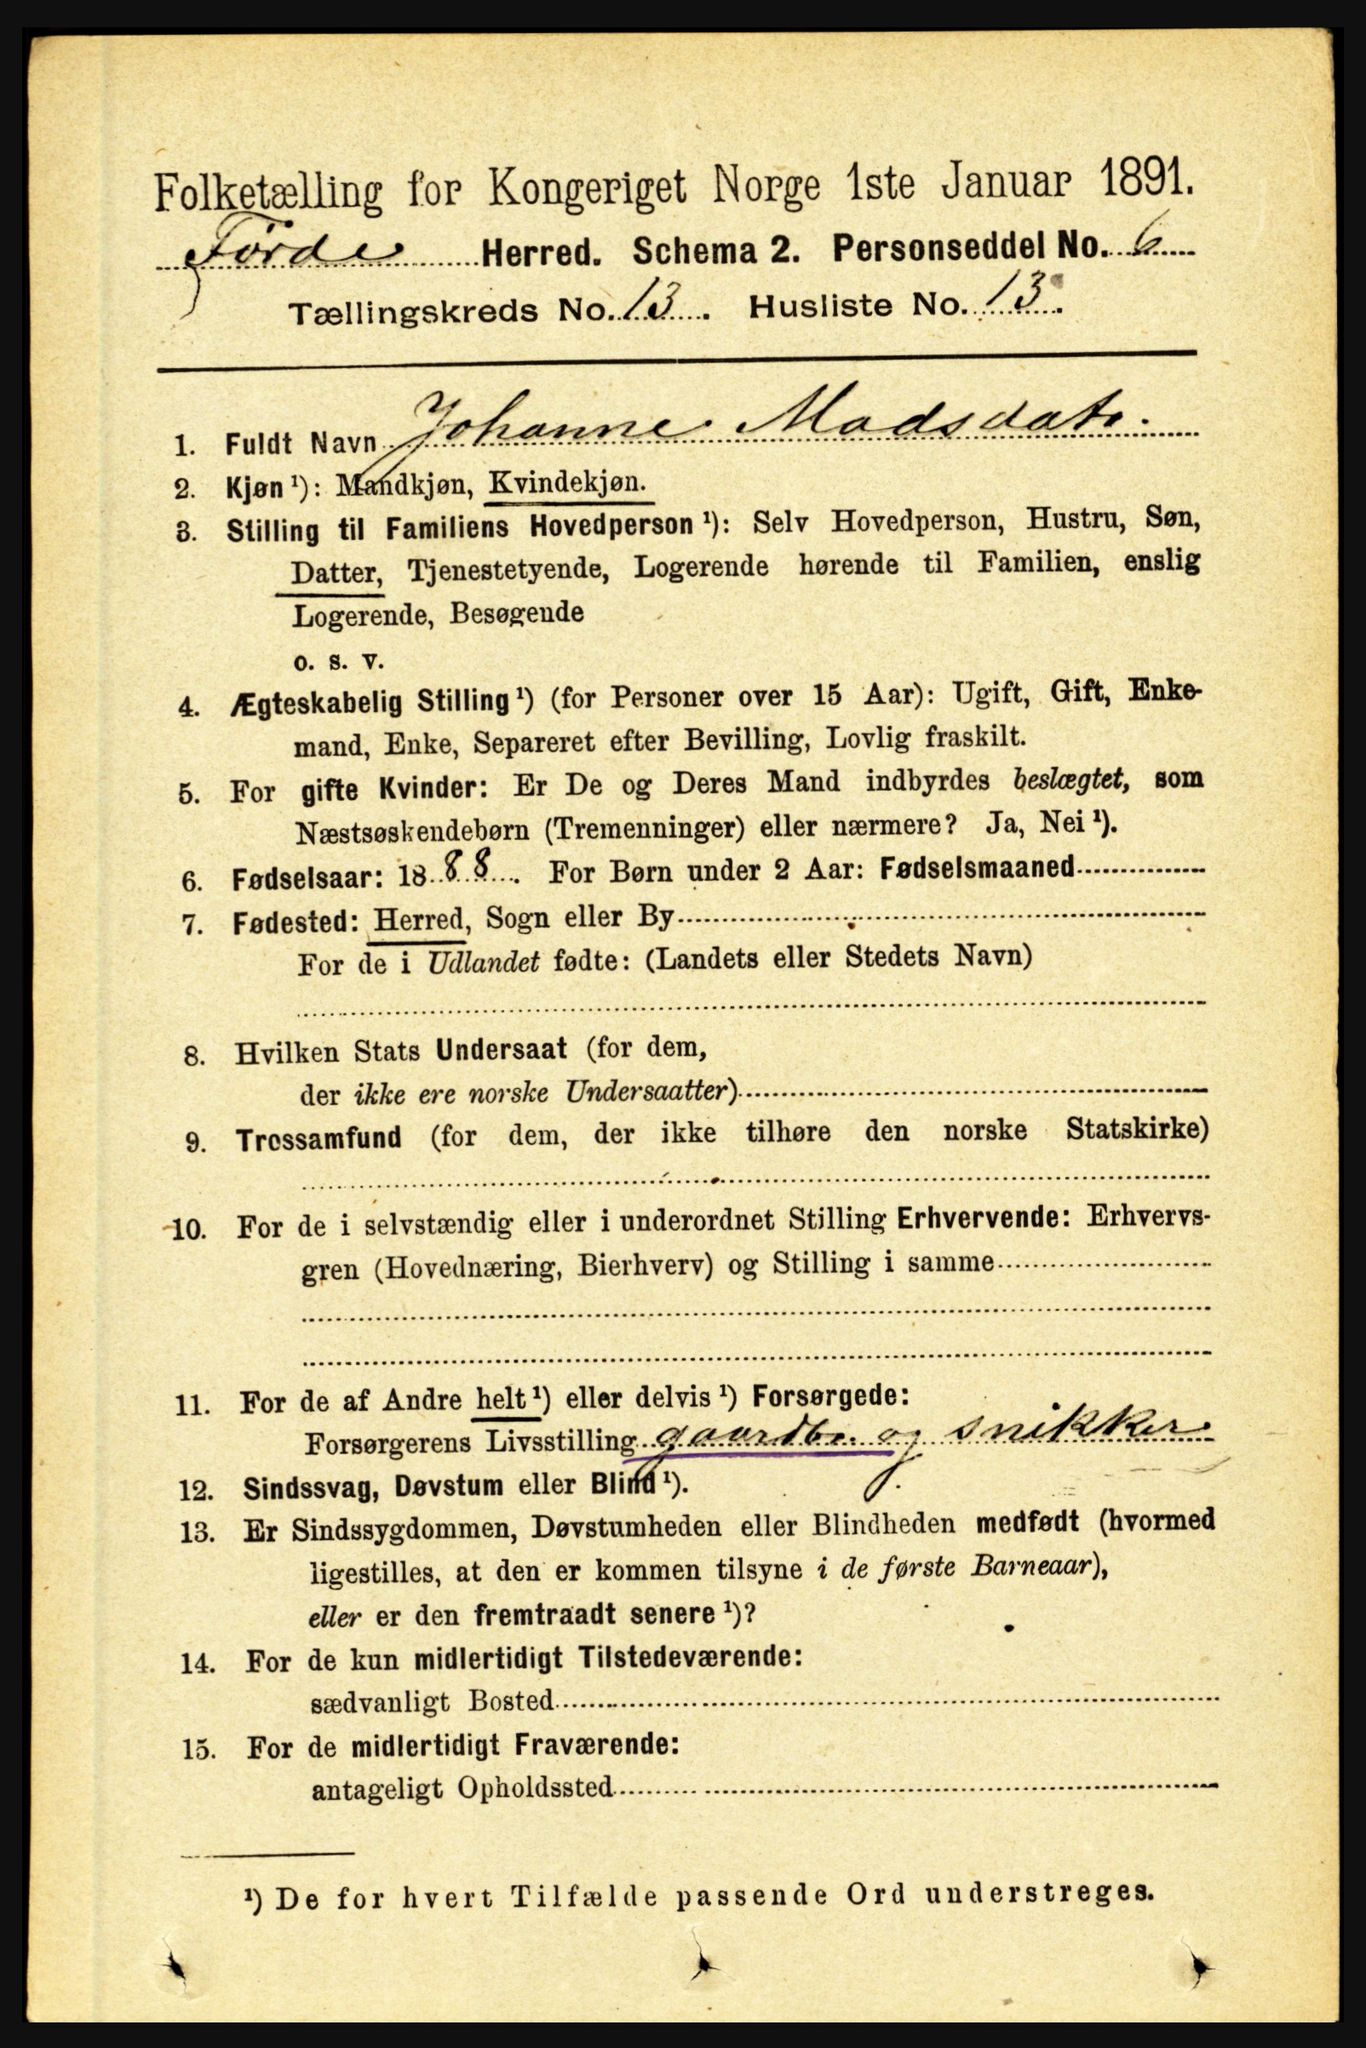 Folketælling for Kongeriget Norge 1ste Januar 1891.
Førde Herred. Schema 2. Personseddel No. 6
Tællingskreds No. 13. Husliste No. 13.
1. Fuldt Navn Johanne Madsdatr.
2. Kjøn ¹): Mandkjøn, Kvindekjøn.
3. Stilling til Familiens Hovedperson ¹): Selv Hovedperson, Hustru, Søn,
Datter, Tjenestetyende, Logerende hørende til Familien, enslig
Logerende, Besøgende
o. s. v.
4. Ægteskabelig Stilling ¹) (for Personer over 15 Aar): Ugift, Gift, Enke-
mand, Enke, Separeret efter Bevilling, Lovlig fraskilt.
5. For gifte Kvinder: Er De og Deres Mand indbyrdes beslægtet, som
Næstsøskendebørn (Tremenninger) eller nærmere? Ja, Nei ¹).
6. Fødselsaar: 1888. For Børn under 2 Aar: Fødselsmaaned
7. Fødested: Herred, Sogn eller By
For de i Udlandet fødte: (Landets eller Stedets Navn)
8. Hvilken Stats Undersaat (for dem,
der ikke ere norske Undersaatter)
9. Trossamfund (for dem, der ikke tilhøre den norske Statskirke)
10. For de i selvstændig eller i underordnet Stilling Erhvervende: Erhvervs-
gren (Hovednæring, Bierhverv) og Stilling i samme
11. For de af Andre helt ¹) eller delvis ¹) Forsørgede:
Forsørgerens Livsstilling gaardbr. og snikker
12. Sindssvag, Døvstum eller Blind ¹).
13. Er Sindssygdommen, Døvstumheden eller Blindheden medfødt (hvormed
ligestilles, at den er kommen tilsyne i de første Barneaar),
eller er den fremtraadt senere ¹)?
14. For de kun midlertidigt Tilstedeværende:
sædvanligt Bosted
15. For de midlertidigt Fraværende:
antageligt Opholdssted
¹) De for hvert Tilfælde passende Ord understreges.